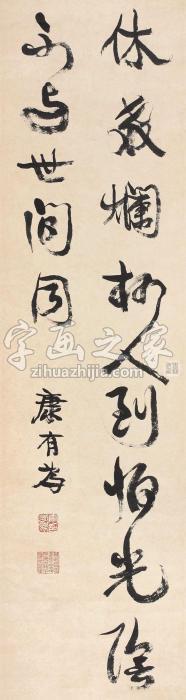 休教爛柯人到怕光陰
不与世間同
康有為
字画之家
zihuazhijia.com